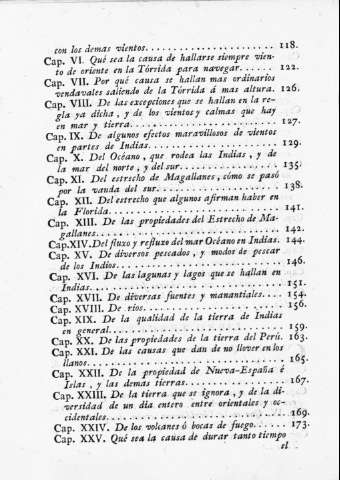 con los demas vientos........................ 118.
Cap. VI. Qué sea la causa de hallarse siempre vien-
to de oriente en la Tórrida para navegar....... 122.
Cap. VII. Por qué causa se hallan mas ordinarios
vendavales saliendo de la Tórrida á mas altura. 126.
Cap. VIII. De las excepciones que se hallan en la re-
gla ya dicha, y de los vientos y calmas que hay
en mar y tierra.............................. 127.
Cap. IX. De algunos efectos maravillosos de vientos
en partes de Indias.......................... 129.
Cap. X. Del Océano, que rodea las Indias, y de
la mar del norte, y del sur................... 135.
Cap. XI. Del estrecho de Magallanes, cómo se pasó
por la vanda del sur.......................... 138.
Cap. XII. Del estrecho que algunos afirman haber en
la Florida................................... 141.
Cap. XIII. De las propiedades del Estrecho de Ma-
gallanes..................................... 142.
Cap. XIV. Del fluxo y refluxo del mar Océano en Indias. 144.
Cap. XV. De diversos pescados, y modos de pescar
de los Indios................................ 146.
Cap. XVI. De las lagunas y lagos que se hallan en
Indias....................................... 151.
Cap. XVII. De diversas fuentes y manantiales.... 154.
Cap. XVIII. De rios.......................... 156.
Cap. XIX. De la qualidad de la tierra de Indias
en general................................... 159.
Cap. XX. De las propiedades de la tierra del Perú. 163.
Cap. XXI. De las causas que dan de no llover en los
llanos....................................... 165.
Cap. XXII. De la propiedad de Nueva-España é
Islas, y las demas tierras.................... 167.
Cap. XXIII. De la tierra que se ignora, y de la di-
versidad de un dia entero entre orientales y oc-
cidentales................................... 169.
Cap. XXIV. De los volcanes ó bocas de fuego...... 173.
Cap. XXV. Qué sea la causa de durar tanto tiempo
el